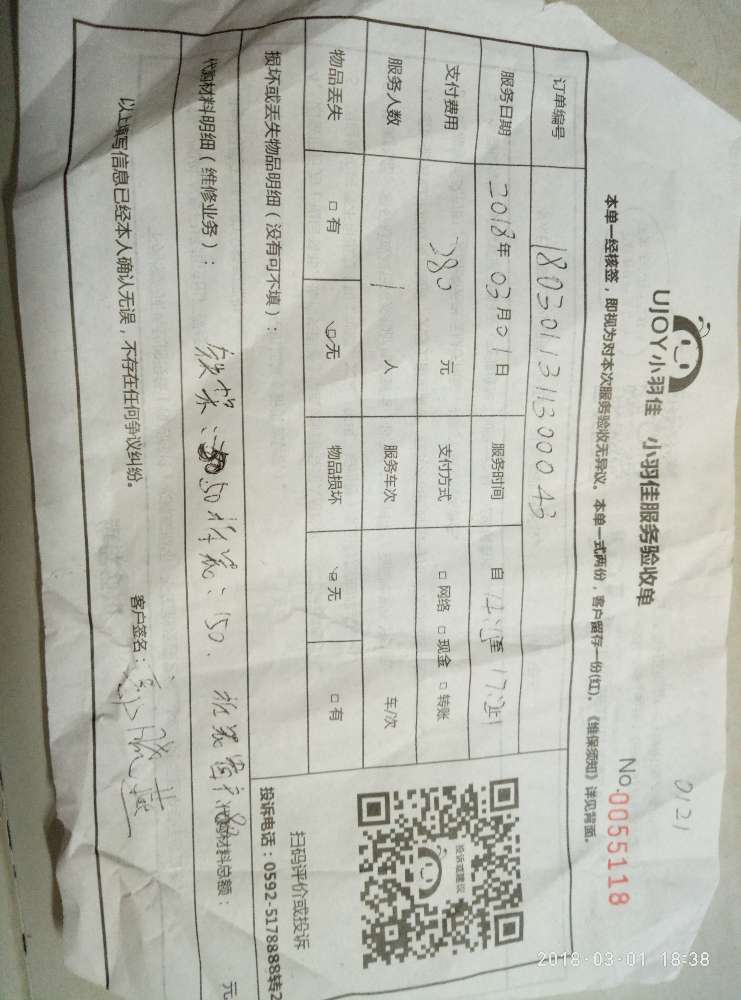 0121
UJOY小羽佳 小羽佳服务验收单
No.0055118
本单一经核签，即视为对本次服务验收无异议。本单一式两份，客户留存一份(红)。《维保须知》详见背面。
订单编号 180301131130000 43
服务日期 2018年03月01日 服务时间 自 至 17: 止
支付费用 380 元 支付方式 □网络 □现金 □转账
服务人数 1 人 服务车次 车/次
物品丢失 □有 □无 物品损坏 □无 □有
损坏或丢失物品明细（没有可不填）：
代购材料明细（维修业务）： 50 150. 代购材料总额： 元
以上填写信息已经本人确认无误，不存在任何争议纠纷。 客户签名：
投诉或建议
扫码评价或投诉
投诉电话：0592-5178888转2
2018-03-01 18:38